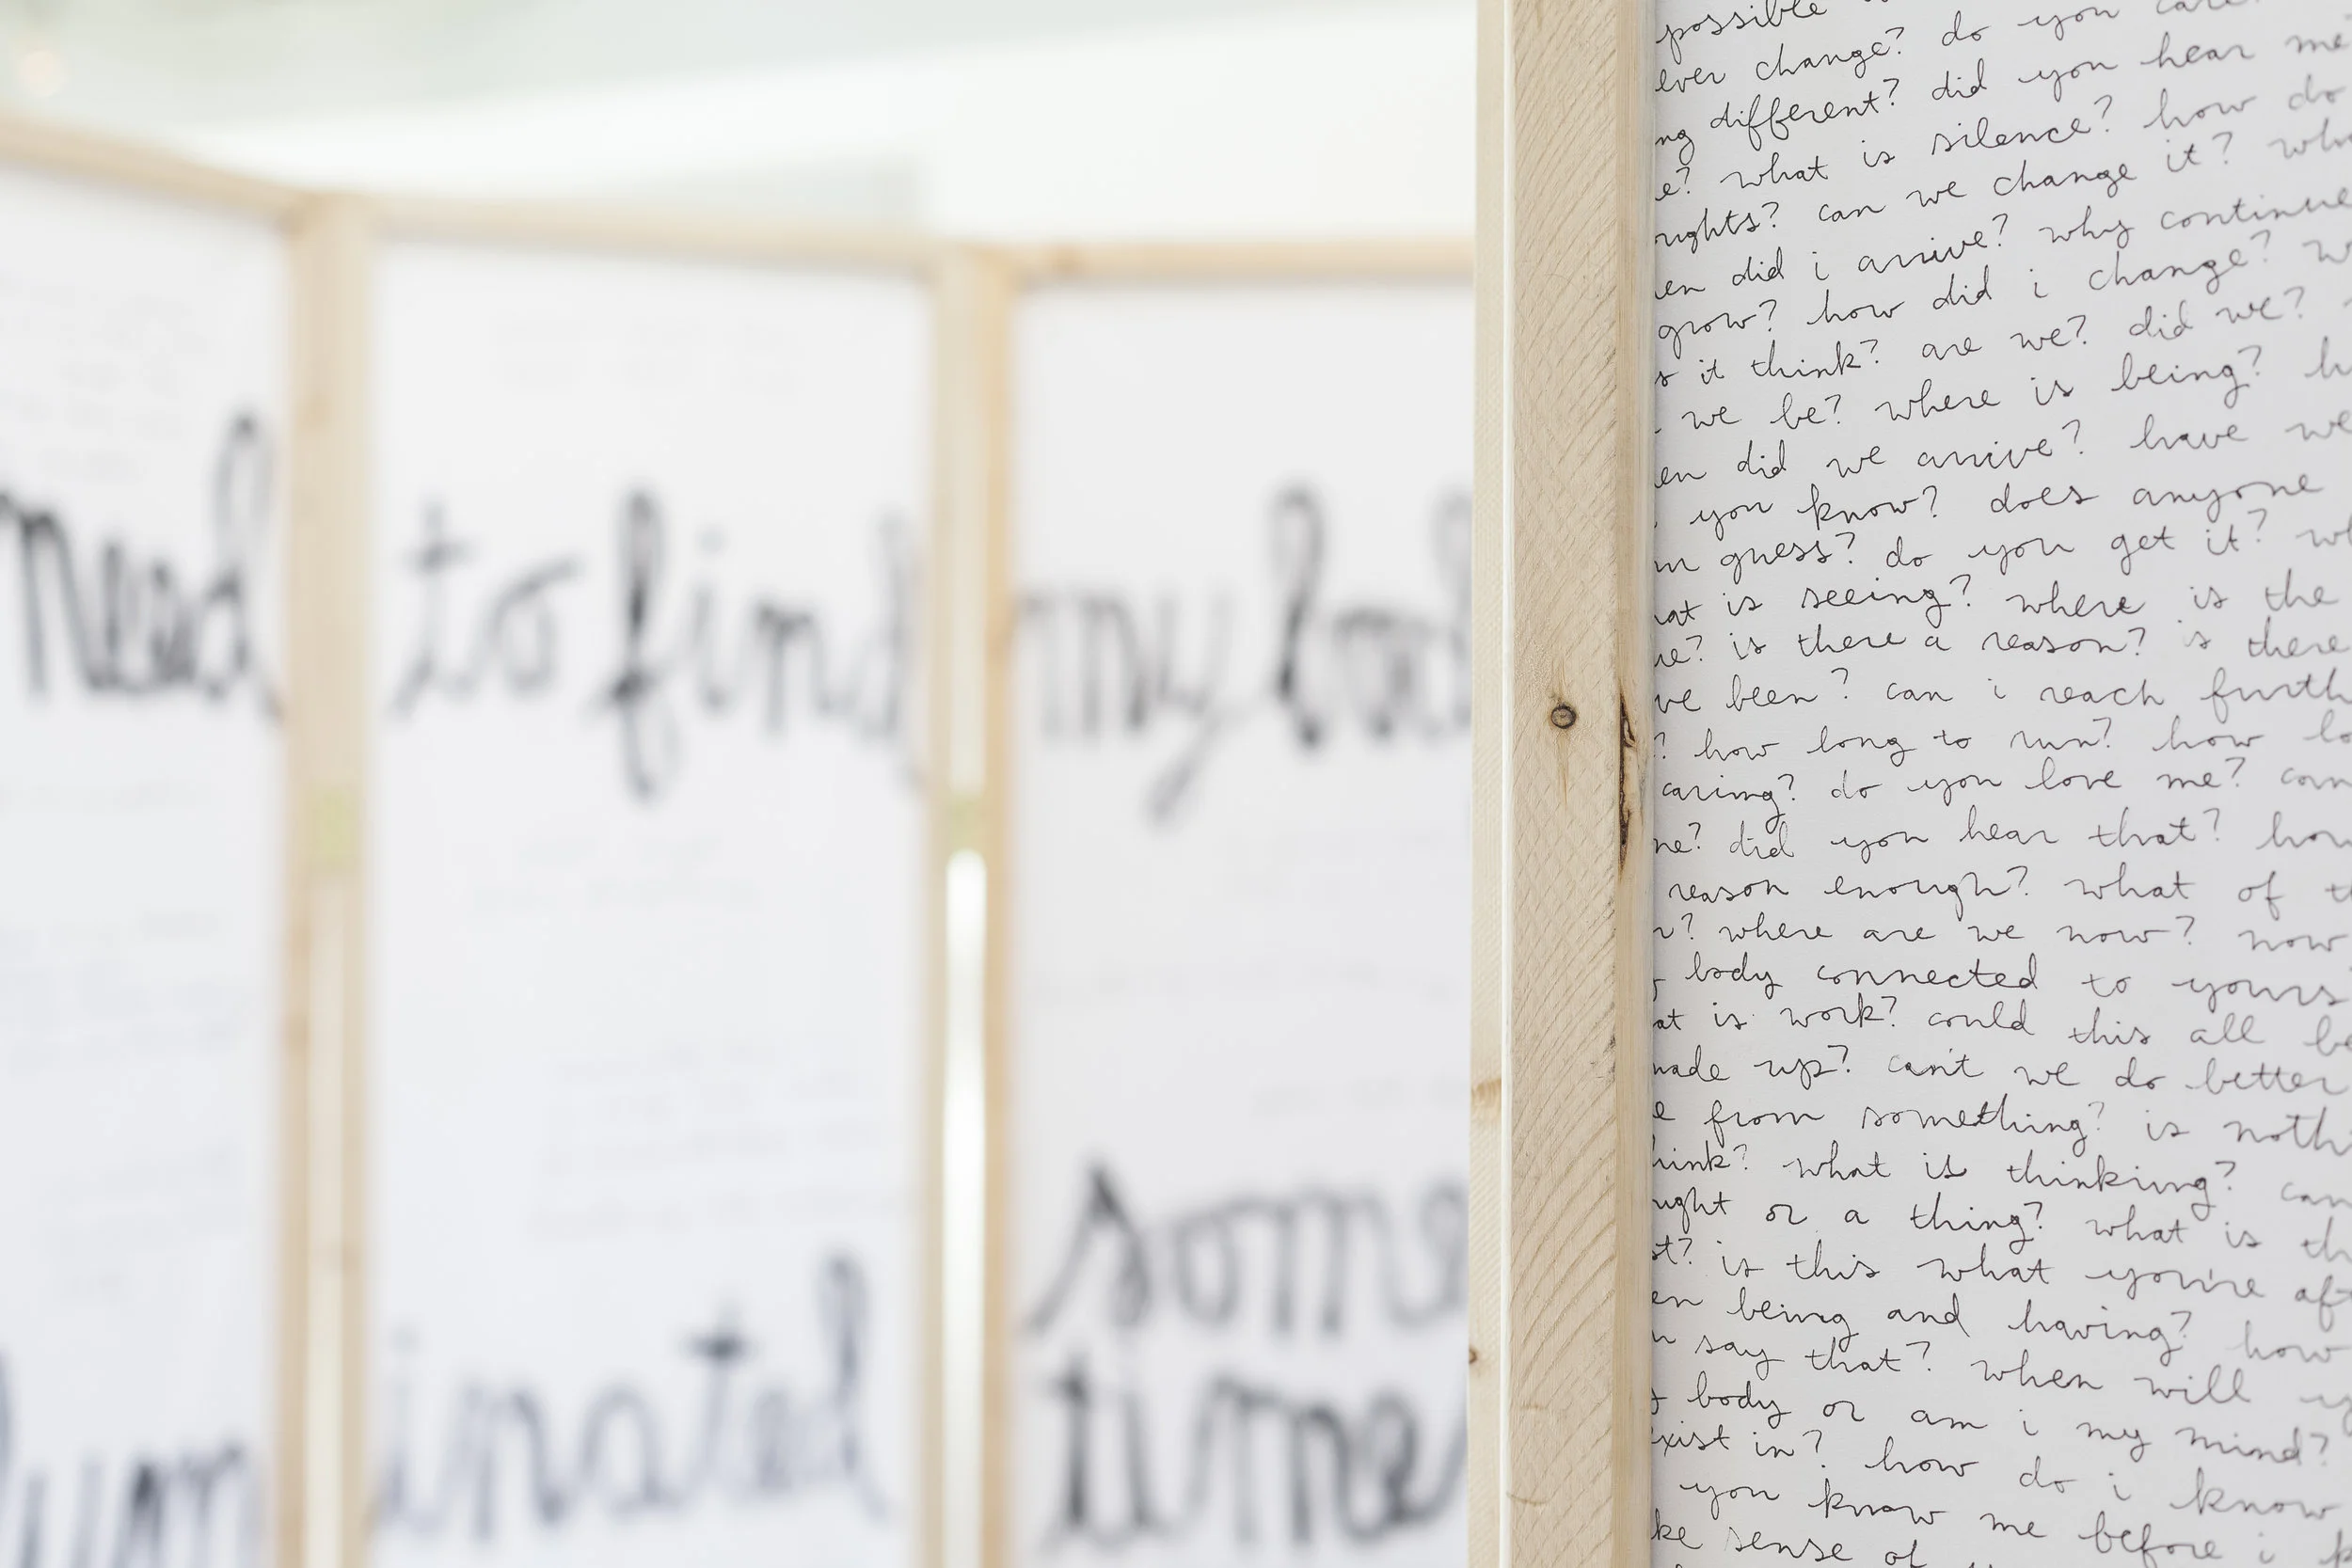 need to find my bod
some
time
possible
ever change? do you care
different? did you hear me
e? what is silence? how do
oughts? can we change it? wh
en did i arrive? why continue
grow? how did i change? w
s it think? are we? did we?
we be? where is being? h
en did we arrive? have we
you know? does anyone
guess? do you get it? wh
at is seeing? where is the
re? is there a reason? is there
ve been? can i reach furth
? how long to run? how lo
caring? do you love me? can
me? did you hear that? how
reason enough? what of th
r? where are we now? now
body connected to yours
at is work? could this all be
made up? can't we do better
e from something? is nothi
hink? what is thinking? can
ught or a thing? what is th
st? is this what you're aft
en being and having? how
say that? when will y
body or am i my mind?
exist in? how do i know
you know me before i
ke sense of